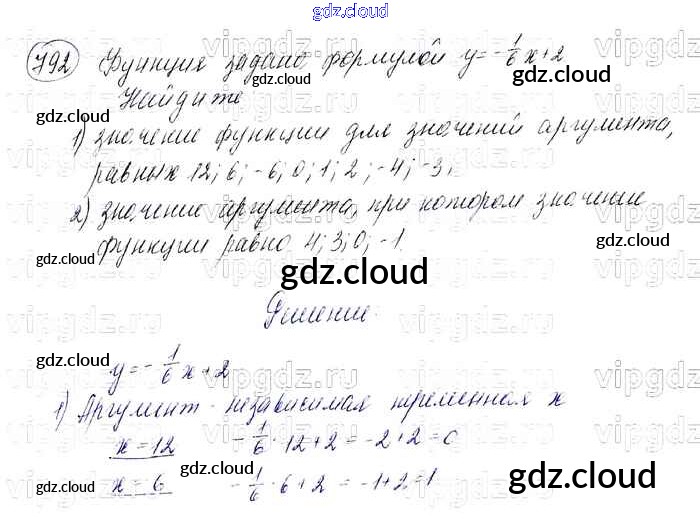 gdz.cloud
792 Функция задано формулой y = -1/6 x + 2
gdz.cloud
Найдите
gdz.cloud
1) значение функции для значений аргумента,
равных 12; 6; -6; 0; 1; 2; -4; -3;
gdz.cloud
2) значение аргумента, при котором значение
функции равно 4; 3; 0; -1.
gdz.cloud
Решение.
gdz.cloud
y = -1/6 x + 2
1) Аргумент - независимая переменная x
x = 12   -1/6 · 12 + 2 = -2 + 2 = 0
gdz.cloud
x = 6   -1/6 · 6 + 2 = -1 + 2 = 1
gdz.cloud
gdz.cloud